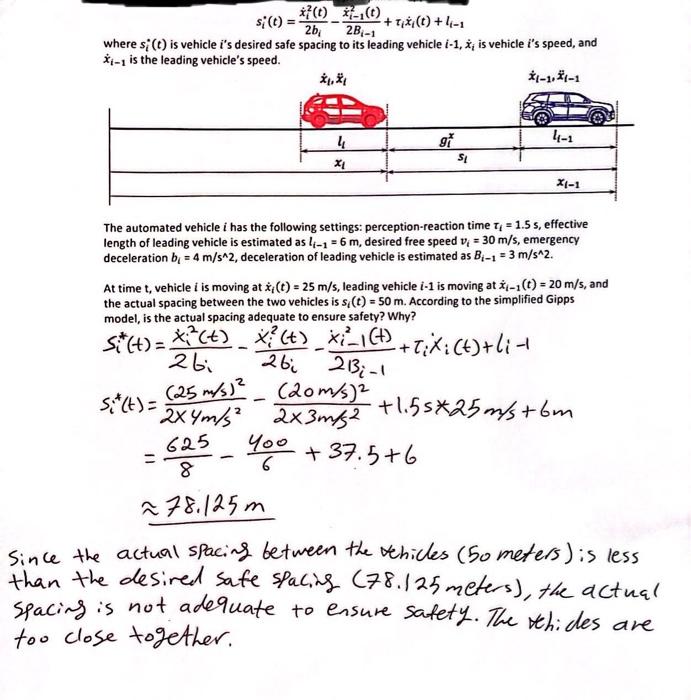 sᵢ*(t) = ẋᵢ²(t)/2bᵢ − ẋᵢ₋₁²(t)/2Bᵢ₋₁ + τᵢẋᵢ(t) + lᵢ₋₁
where sᵢ*(t) is vehicle i's desired safe spacing to its leading vehicle i-1, ẋᵢ is vehicle i's speed, and
ẋᵢ₋₁ is the leading vehicle's speed.
ẋᵢ, ẍᵢ ẋᵢ₋₁, ẍᵢ₋₁
lᵢ gᵢˣ lᵢ₋₁
xᵢ sᵢ
xᵢ₋₁
The automated vehicle i has the following settings: perception-reaction time τᵢ = 1.5 s, effective
length of leading vehicle is estimated as lᵢ₋₁ = 6 m, desired free speed vᵢ = 30 m/s, emergency
deceleration bᵢ = 4 m/s^2, deceleration of leading vehicle is estimated as Bᵢ₋₁ = 3 m/s^2.
At time t, vehicle i is moving at ẋᵢ(t) = 25 m/s, leading vehicle i-1 is moving at ẋᵢ₋₁(t) = 20 m/s, and
the actual spacing between the two vehicles is sᵢ(t) = 50 m. According to the simplified Gipps
model, is the actual spacing adequate to ensure safety? Why?
Sᵢ*(t) = ẋᵢ²(t)/2bᵢ − ẋᵢ²(t)/2bᵢ − ẋᵢ²₋₁(t)/2Bᵢ₋₁ + τᵢẋᵢ(t) + lᵢ-1
Sᵢ*(t) = (25 m/s)²/2×4m/s² − (20m/s)²/2×3m/s² + 1.5s*25m/s + 6m
= 625/8 − 400/6 + 37.5+6
≈ 78.125 m
Since the actual spacing between the vehicles (50 meters) is less
than the desired safe spacing (78.125 meters), the actual
spacing is not adequate to ensure safety. The vehicles are
too close together.